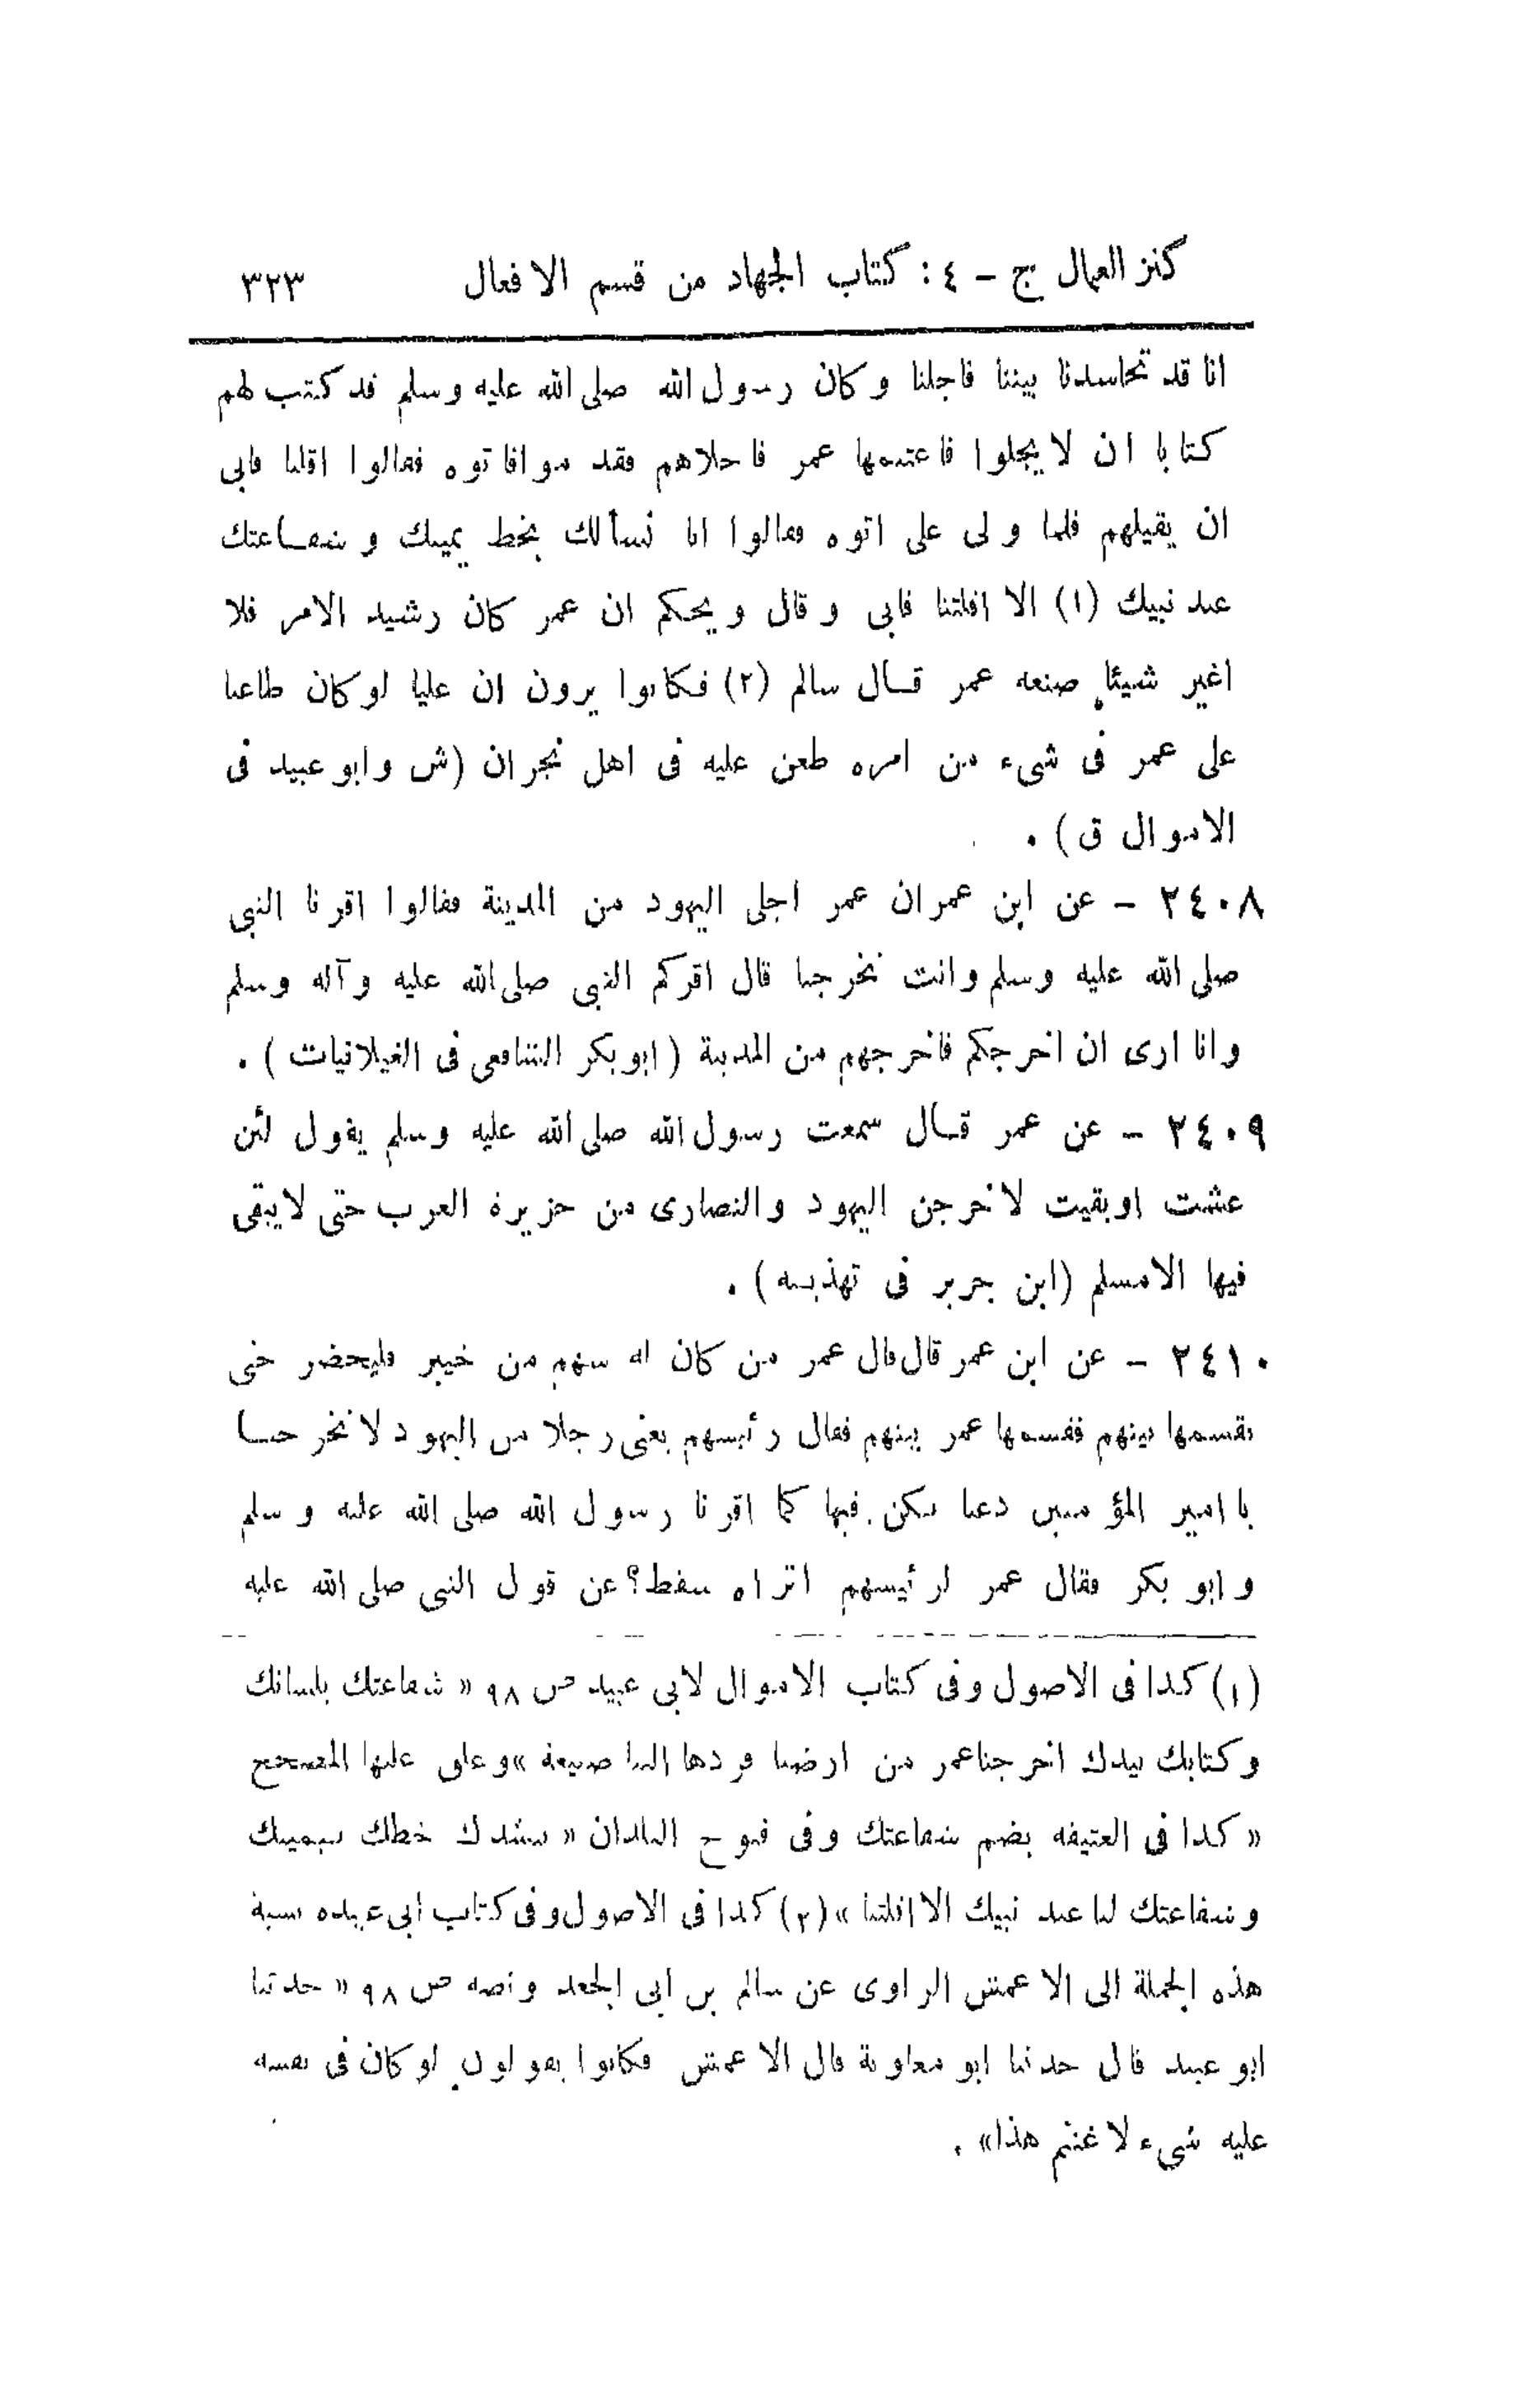 كنز العمال ج - ٤ : كتاب الجهاد من قسم الافعال ٣٢٣
انا قد تحاسدنا بيننا فاجلنا وكان رسول الله صلى الله عليه وسلم قد كتب لهم
كتابا ان لا يجلوا فاعتنمها عمر فاجلاهم فقد موافاتوه فقالوا اقلنا فابى
ان يقيلهم فلما ولى على اتوه فقالوا انا نسألك بخط يمينك وشفاعتك
عند نبيك (١) الا اقلتنا فابى وقال ويحكم ان عمر كان رشيد الامر فلا
اغير شيئا صنعه عمر قال سالم (٢) فكانوا يرون ان عليا لو كان طاعنا
على عمر فى شىء من امره طعن عليه فى اهل نجران (ش وابو عبيد فى
الاموال ق) .
٢٤٠٨ - عن ابن عمران عمر اجلى اليهود من المدينة فقالوا اقرنا النبى
صلى الله عليه وسلم وانت تخرجنا قال اقركم النبى صلى الله عليه وآله وسلم
وانا ارى ان اخرجكم فاخرجهم من المدينة (ابوبكر الشافعى فى الغيلانيات) .
٢٤٠٩ - عن عمر قال سمعت رسول الله صلى الله عليه وسلم يقول لئن
عشت اوبقيت لاخرجن اليهود والنصارى من جزيرة العرب حتى لايبقى
فيها الامسلم (ابن جرير فى تهذيبه) .
٢٤١٠ - عن ابن عمر قال قال عمر من كان له سهم من خيبر فليحضر حتى
نقسمها بينهم فقسمها عمر بينهم فقال رئيسهم يعنى رجلا من اليهود لا تخرجنا
يا امير المؤمنين دعنا نكن فيها كما اقرنا رسول الله صلى الله عليه وسلم
وابو بكر فقال عمر لرئيسهم اتراه سقط؟ عن قول النبى صلى الله عليه
(١) كذا فى الاصول وفى كتاب الاموال لابى عبيد ص ٩٨ « شفاعتك بلسانك
وكتابك بيدك اخرجناعمر من ارضنا فردها الينا صنيعة » وعلق عليها المصحح
« كذا فى العتيقه بضم شفاعتك وفى فتوح البلدان « ننشدك خطك بيمينك
وشفاعتك لنا عند نبيك الا اقلتنا » (٢) كذا فى الاصول وفى كتاب ابى عبيده نسبة
هذه الجملة الى الاعمش الراوى عن سالم بن ابى الجعد ونصه ص ٩٨ « حدثنا
ابو عبيد قال حدثنا ابو معاوية قال الاعمش فكانوا يقولون لو كان فى نفسه
عليه شىء لاغتنم هذا» .